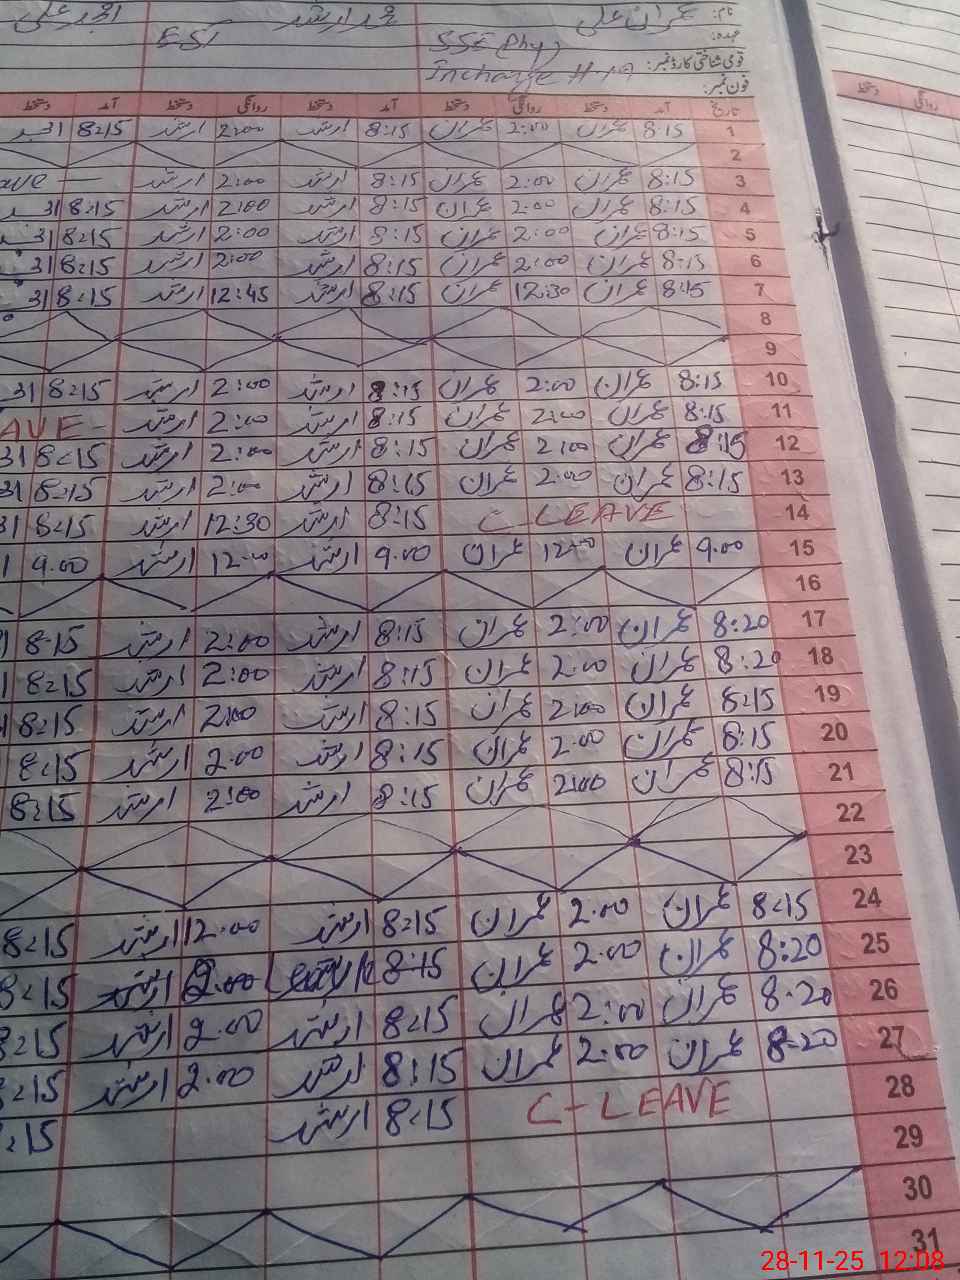 نام: عمران علی محمد ارشد امجد علی
عہدہ: SSE (Phy) EST
قومی شناختی کارڈ نمبر: Incharge H.M
فون نمبر:
تاریخ آمد دستخط روانگی دستخط آمد دستخط روانگی دستخط آمد دستخط
1 8:15 عمران 2:00 عمران 8:15 ارشد 2:00 ارشد 8:15
2
3 8:15 عمران 2:00 عمران 8:15 ارشد 2:00 ارشد
4 8:15 عمران 2:00 عمران 8:15 ارشد 2:00 ارشد 8:15
5 8:15 عمران 2:00 عمران 8:15 ارشد 2:00 ارشد 8:15
6 8:15 عمران 2:00 عمران 8:15 ارشد 2:00 ارشد 8:15
7 8:15 عمران 12:30 عمران 8:15 ارشد 12:45 ارشد 8:15
8
9
10 8:15 عمران 2:00 عمران 8:15 ارشد 2:00 ارشد 8:15
11 8:15 عمران 2:00 عمران 8:15 ارشد 2:00 ارشد
12 8:15 عمران 2:00 عمران 8:15 ارشد 2:00 ارشد 8:15
13 8:15 عمران 2:00 عمران 8:15 ارشد 2:00 ارشد 8:15
14 C-LEAVE 8:15 ارشد 12:30 ارشد 8:15
15 9.00 عمران 12:00 عمران 9.00 ارشد 12:00 ارشد 9.00
16
17 8:20 عمران 2:00 عمران 8:15 ارشد 2:00 ارشد 8:15
18 8:20 عمران 2:00 عمران 8:15 ارشد 2:00 ارشد 8:15
19 8:15 عمران 2:00 عمران 8:15 ارشد 2:00 ارشد 8:15
20 8:15 عمران 2:00 عمران 8:15 ارشد 2:00 ارشد 8:15
21 8:15 عمران 2:00 عمران 8:15 ارشد 2:00 ارشد 8:15
22
23
24 8:15 عمران 2:00 عمران 8:15 ارشد 12:00 ارشد 8:15
25 8:20 عمران 2:00 عمران 8:15 2:00 ارشد 8:15
26 8:20 عمران 2:00 عمران 8:15 ارشد 2:00 ارشد 8:15
27 8:20 عمران 2:00 عمران 8:15 ارشد 2:00 ارشد 8:15
28 C-LEAVE 8:15 ارشد
29
30
31
دستخط روانگی
28-11-25 12:08